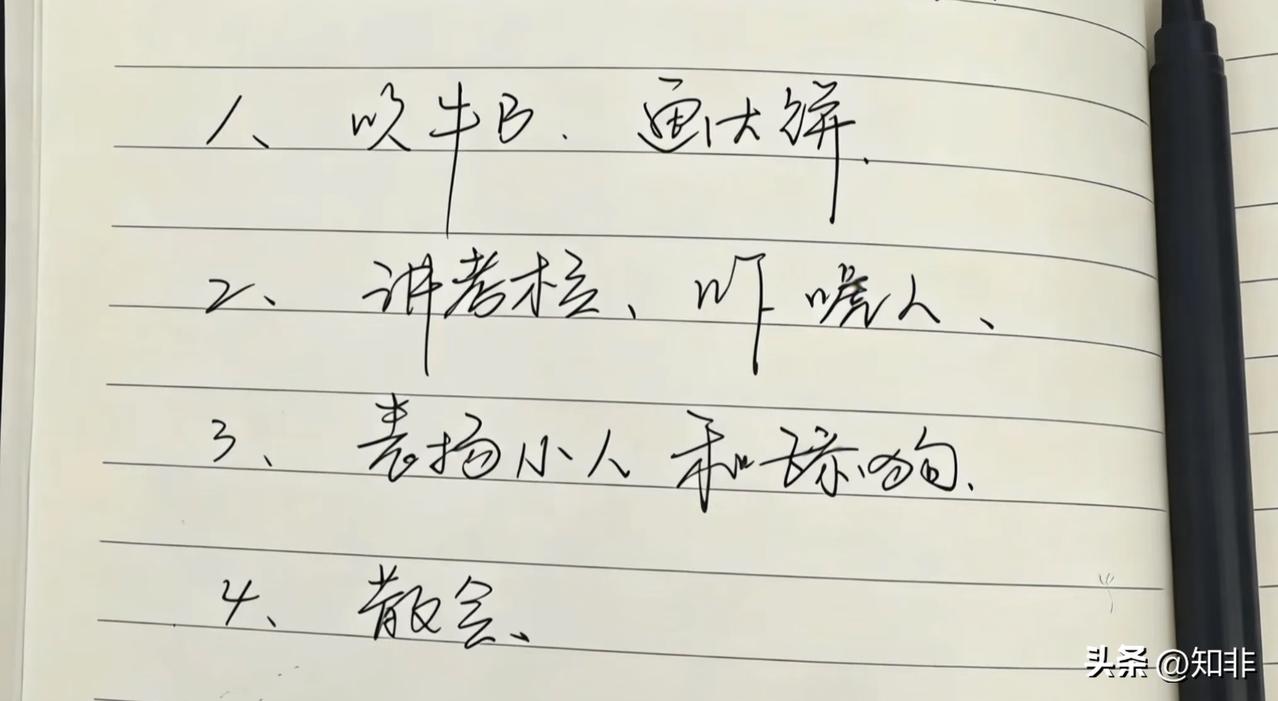 1、吹牛B.画大饼.
2、讲考核、咋唬人、
3、表扬小人和琼狗.
4、散会、
头条 @知非